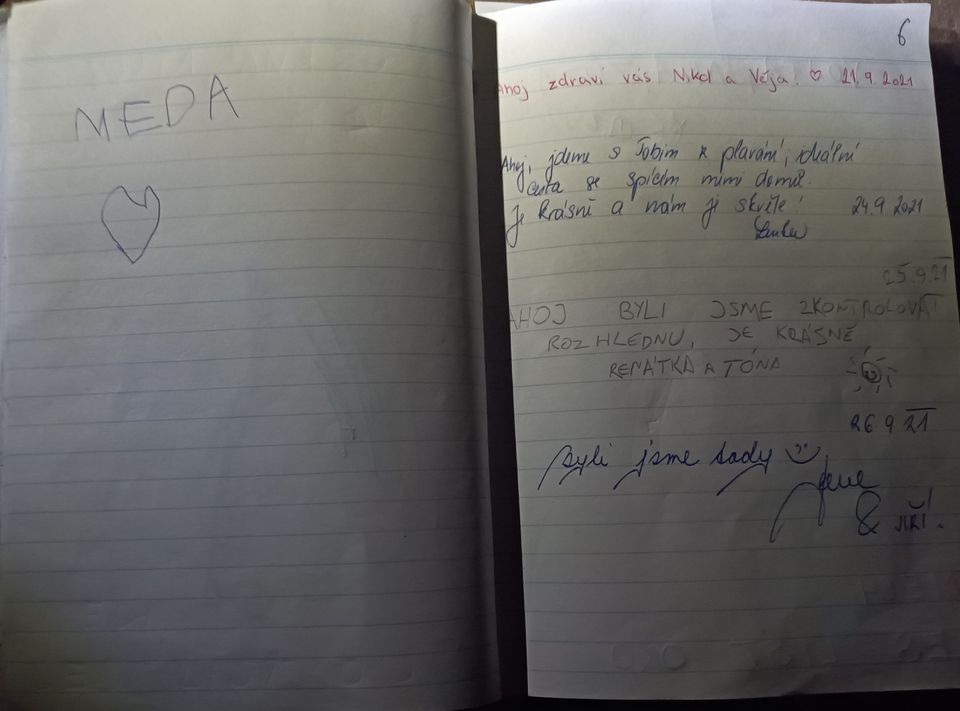 MEDA
6
Ahoj zdraví vás Nikol a Věja. ♡ 21.9.2021
Ahoj, jdeme s Tobim z plavání, ideální
cesta se spícím mimi domů.
Je krásně a nám je skvěle! 24.9 2021
Lenka
25.9.21
AHOJ BYLI JSME ZKONTROLOVAT
ROZHLEDNU, JE KRÁSNĚ
RENÁTKA A TÓNA
26 9 21
Byli jsme tady
& JIŘÍ.